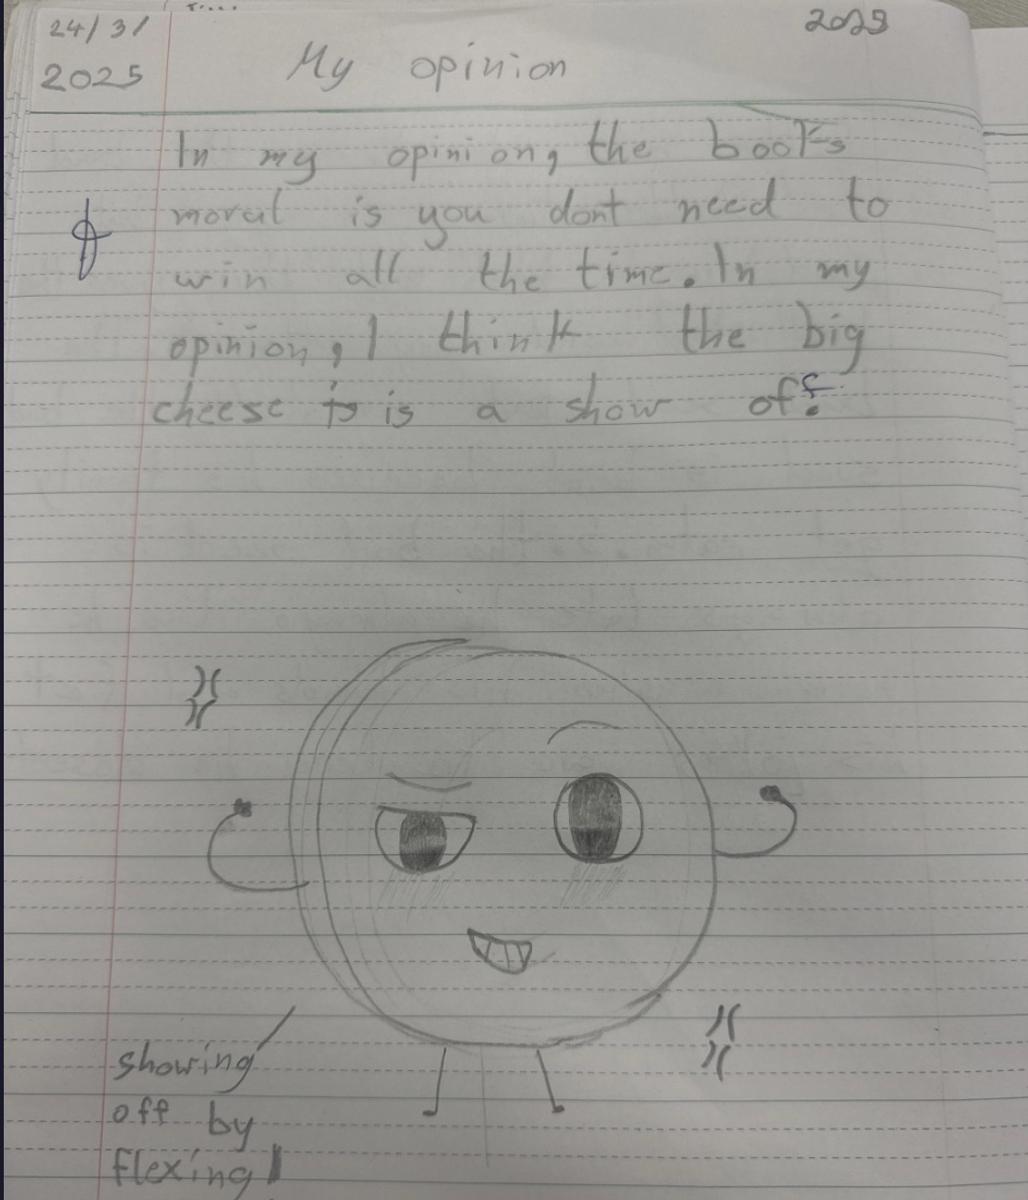 24/3/
2025
2025
My opinion
In my opinion, the books
moral is you dont need to
win all the time. In my
opinion, I think the big
cheese is is a show off.
showing
off by
flexing!